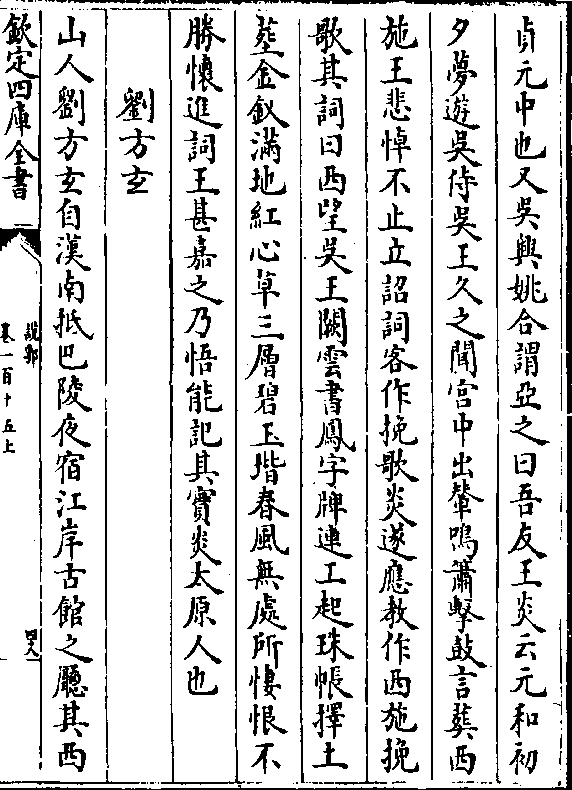 貞元中也又吳興姚合謂亞之曰吾友王炎云元和初
夕夢遊吳侍吳王久之聞宮中出輦鳴簫擊鼓言葬西
施王悲悼不止立詔詞客作挽歌炎遂應教作西施挽
歌其詞曰西望吳王闕雲書鳳字牌連工起珠帳擇土
葬金釵滿地紅心草三層碧玉堦春風無處所悽恨不
勝懷進詞王甚嘉之乃悟能記其實炎太原人也
劉方玄
山人劉方玄自漢南抵巴陵夜宿江岸古館之廳其西
欽定四庫全書
說郛
卷一百十五上